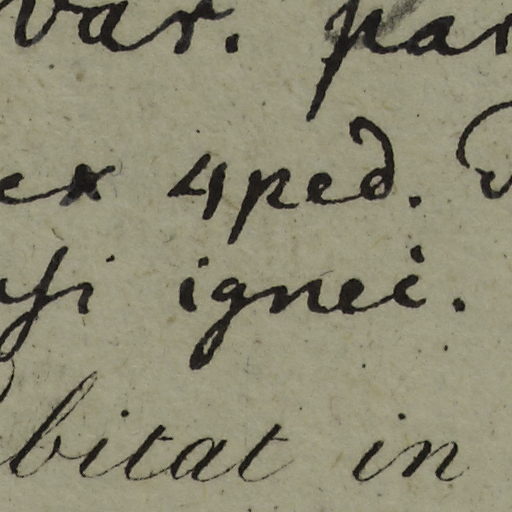 var. par
ex 4 ped.
si ignei.
bitat in